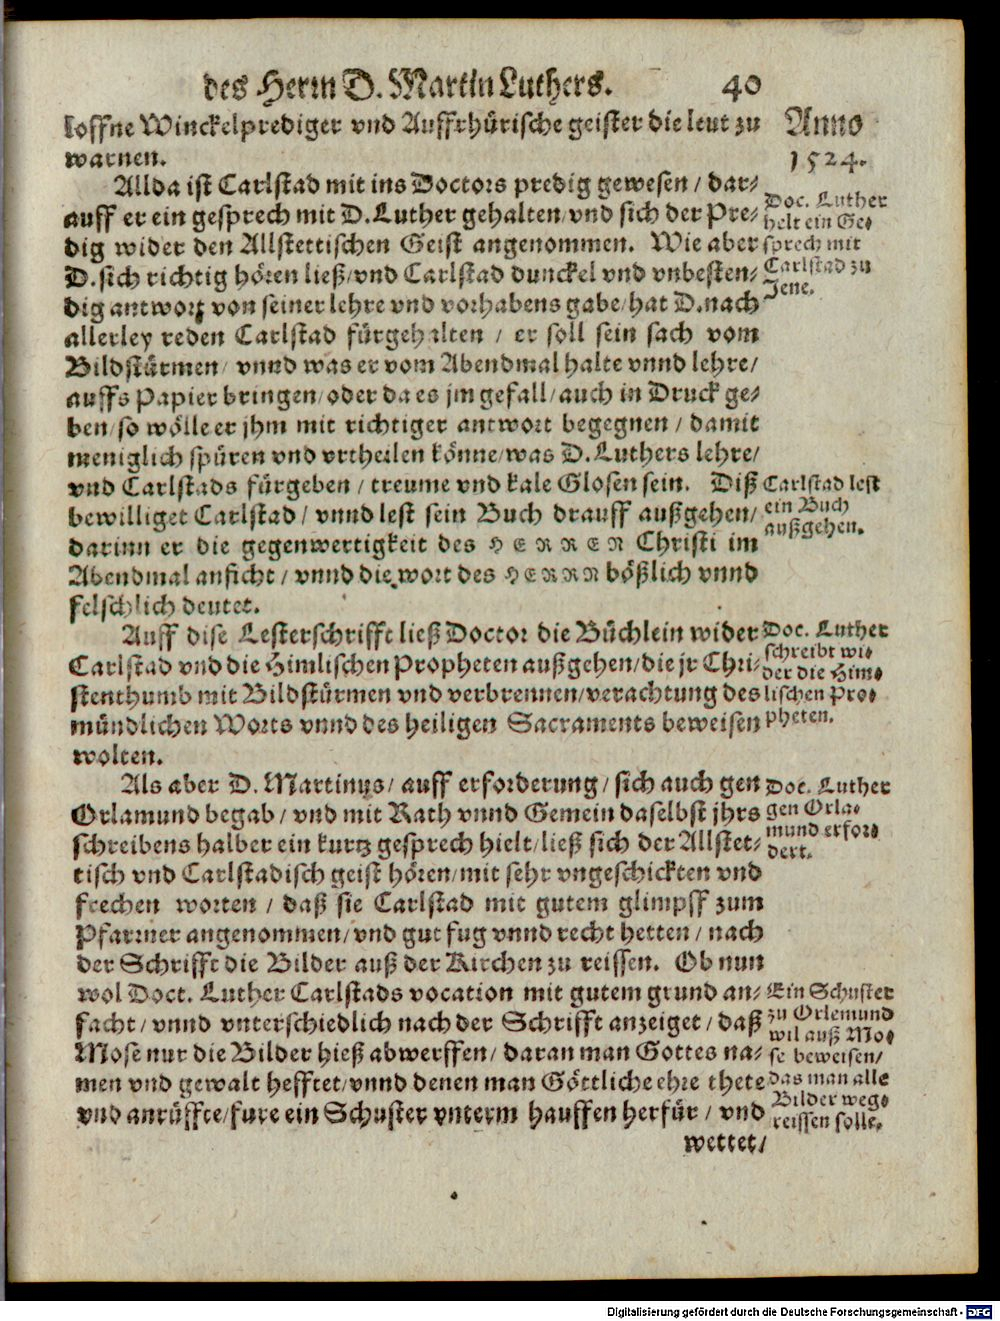 des Herrn D. Martin Luthers. 40
loffne Winckelprediger vnd Auffrhürische geister die leut zu
warnen.
Anno
1524.
Allda ist Carlstad mit ins Doctors predig gewesen / dar-
auff er ein gesprech mit D. Luther gehalten / vnd sich der Pre-
dig wider den Allstettischen Geist angenommen. Wie aber
D. sich richtig hören ließ / vnd Carlstad dunckel vnd vnbesten-
dig antwort von seiner lehre vnd vorhabens gabe / hat D. nach
allerley reden Carlstad fürgehalten / er soll sein sach vom
Bildstürmen / vnnd was er vom Abendmal halte vnnd lehre /
auffs Papier bringen / oder da es jm gefall / auch in Druck ge-
ben / so wölle er jhm mit richtiger antwort begegnen / damit
meniglich spüren vnd vrtheilen könne / was D. Luthers lehre /
vnd Carlstads fürgeben / treume vnd kale Glosen sein. Diß
bewilliget Carlstad / vnnd lest sein Buch drauff außgehen /
darinn er die gegenwertigkeit des HERREN Christi im
Abendmal anficht / vnnd die wort des HERRN bößlich vnnd
felschlich deutet.
Doc. Luther
helt ein Ge-
sprech mit
Carlstad zu
Jene.
Carlstad lest
ein Buch
außgehen.
Auff dise Lesterschrifft ließ Doctor die Büchlein wider
Carlstad vnd die Himlischen Propheten außgehen / die jr Chri-
stenthumb mit Bildstürmen vnd verbrennen / verachtung des
mündlichen Worts vnnd des heiligen Sacraments beweisen
wolten.
Doc. Luther
schreibt wi-
der die Him-
lischen Pro-
pheten.
Als aber D. Martinus / auff erforderung / sich auch gen
Orlamund begab / vnd mit Rath vnnd Gemein daselbst jhrs
schreibens halber ein kurtz gesprech hielt / ließ sich der Allstet-
tisch vnd Carlstadisch geist hören / mit sehr vngeschickten vnd
frechen worten / daß sie Carlstad mit gutem glimpff zum
Pfarrner angenommen / vnd gut fug vnnd recht hetten / nach
der Schrifft die Bilder auß der Kirchen zu reissen. Ob nun
wol Doct. Luther Carlstads vocation mit gutem grund an-
facht / vnnd vnterschiedlich nach der Schrifft anzeiget / daß
Mose nur die Bilder hieß abwerffen / daran man Gottes na-
men vnd gewalt hefftet / vnnd denen man Göttliche ehre thete
vnd anrüffte / fure ein Schuster vnterm hauffen herfür / vnd
wettet /
Doc. Luther
gen Orla-
mund erfor-
dert.
Ein Schuster
zu Orlemund
wil auß Mo-
se beweisen /
das man alle
Bilder weg-
reissen solle.
Digitalisierung gefördert durch die Deutsche Forschungsgemeinschaft - DFG